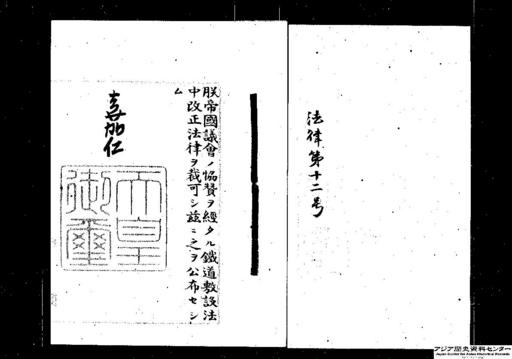 法律第十二号
朕帝國議會ノ協贊ヲ經タル鐵道敷設法
中改正法律ヲ裁可シ茲ニ之ヲ公布セシ
ム
嘉仁
天皇
御璽
アジア歴史資料センター
Japan Center for Asian Historical Records